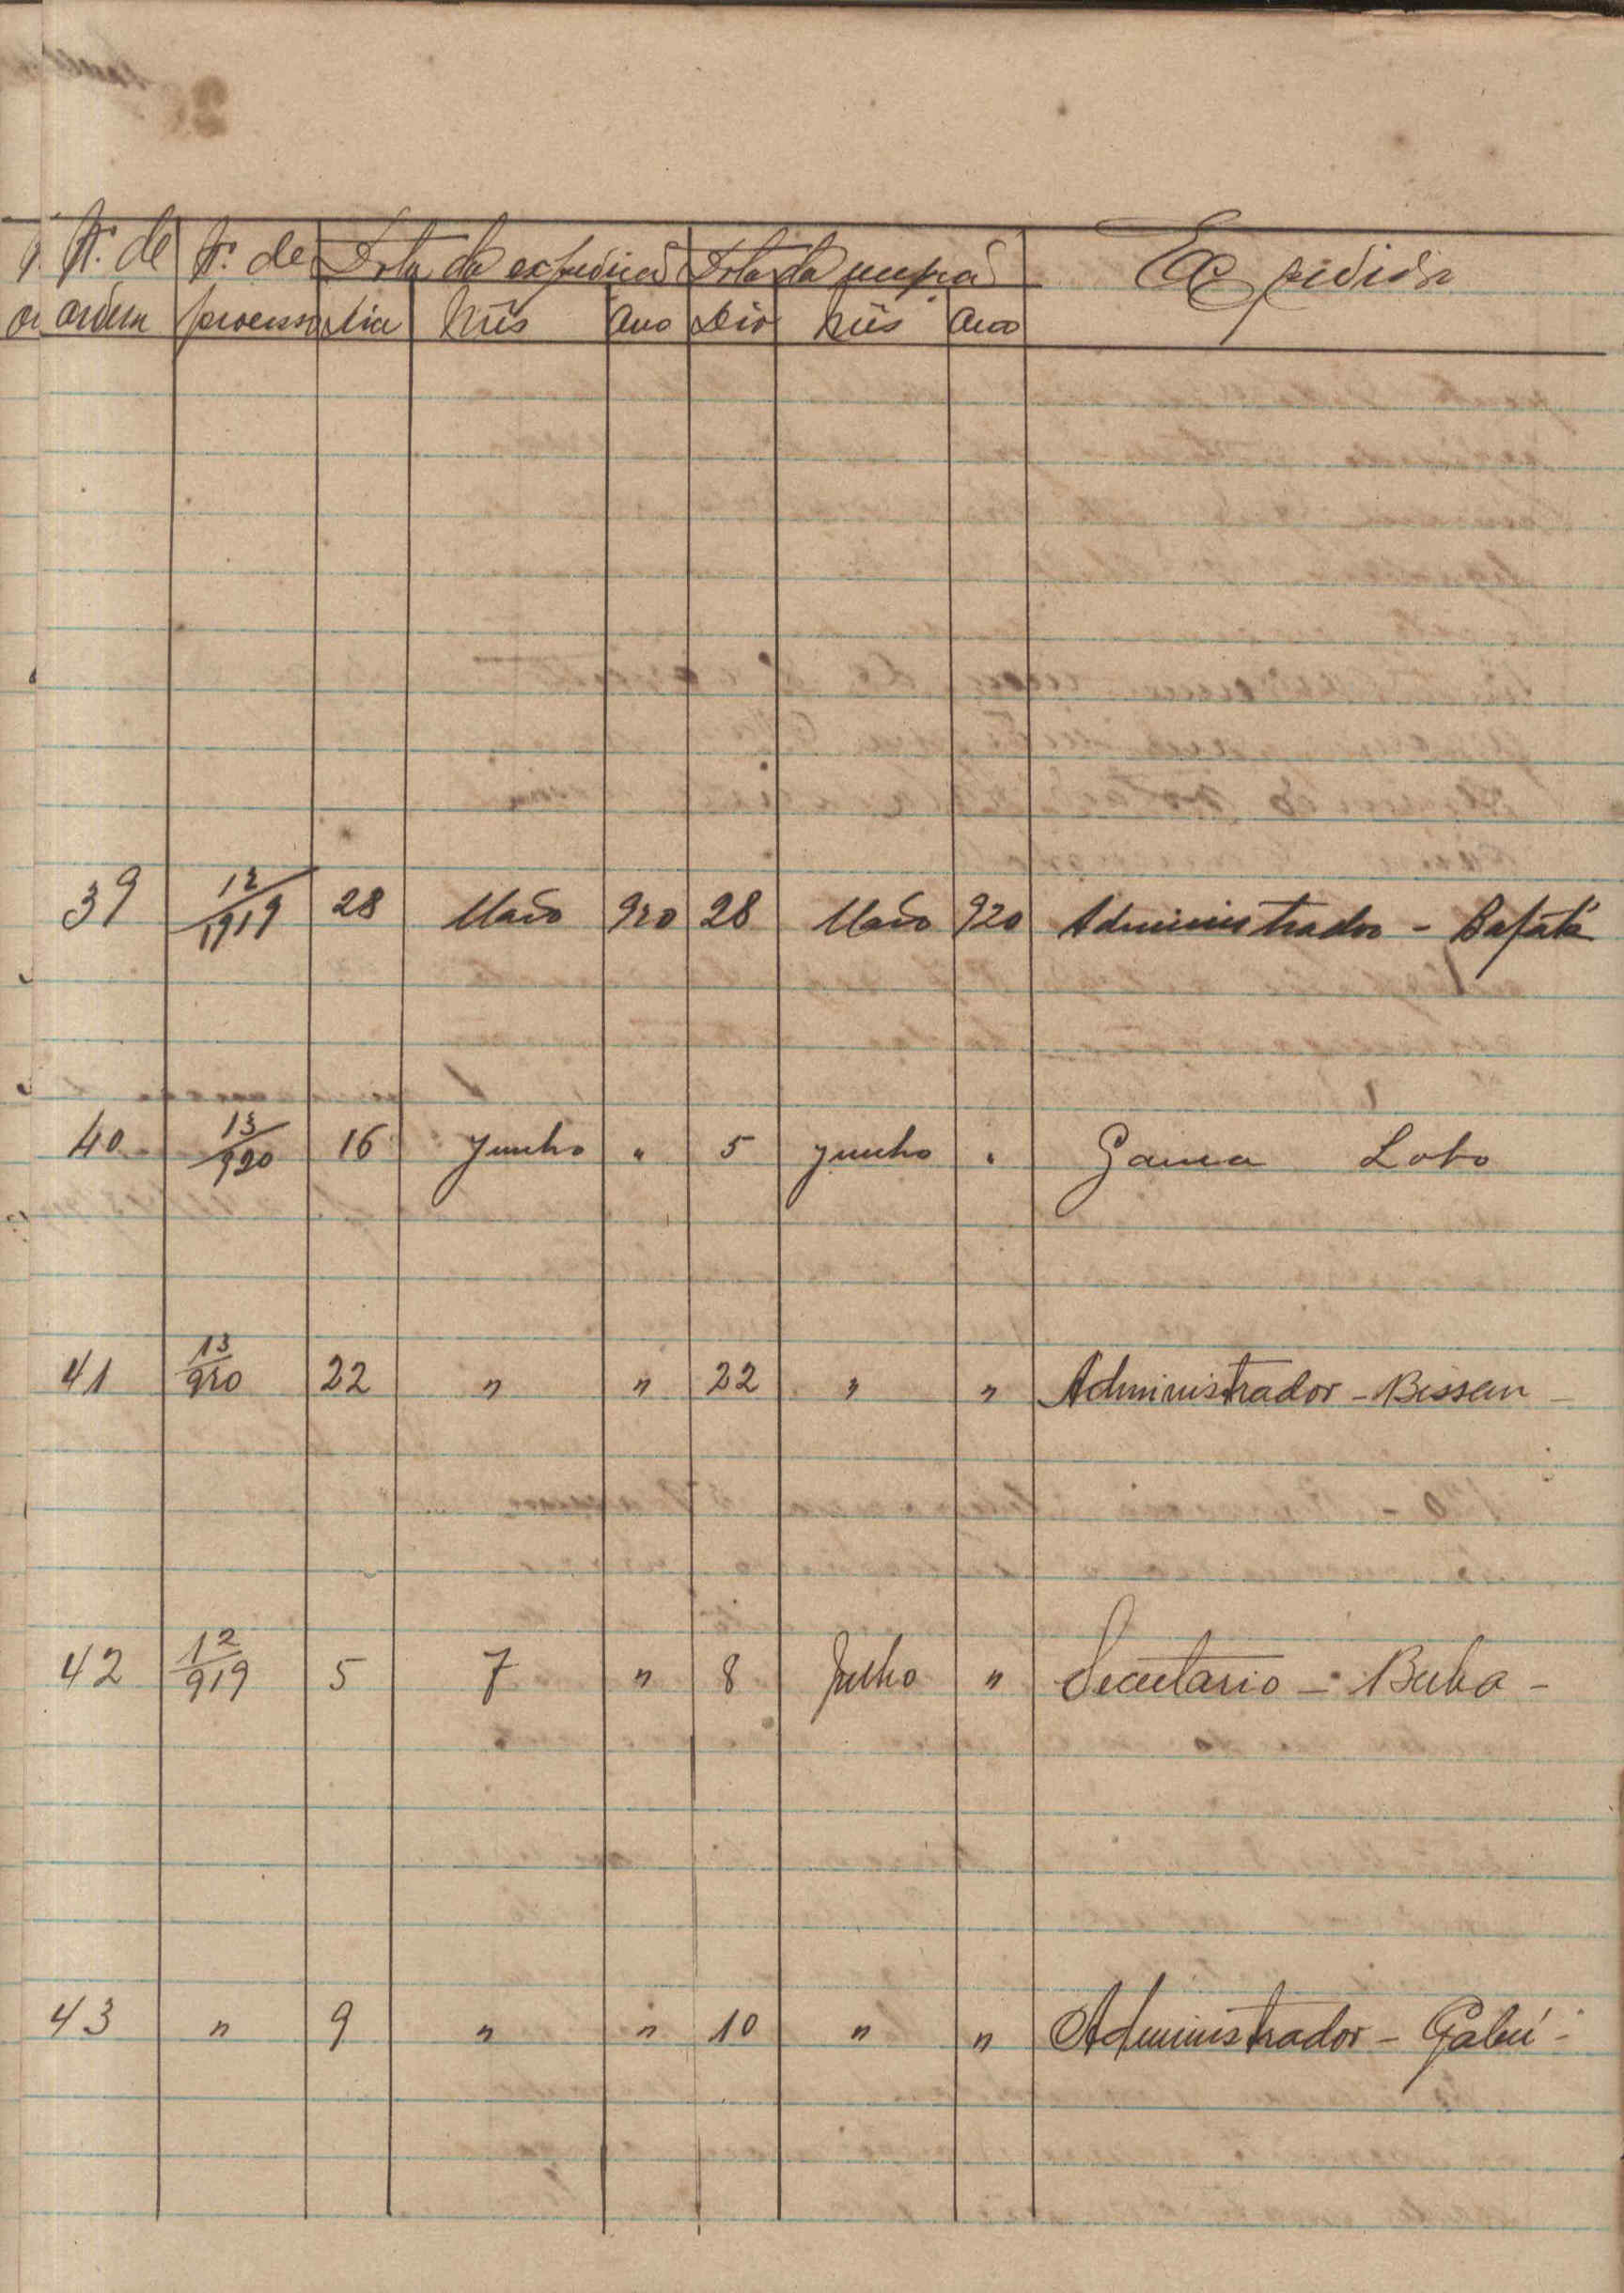 Nº. de Nº. de Data da expedição Data da recepção Expedida
ordem processo Dia Mês Ano Dia Mês Ano
39 12/1919 28 Maio 920 28 Maio 920 Administrador - Bafatá
40 13/920 16 Junho " 5 Junho " Gama Lobo
41 13/920 22 " " 22 " " Administrador - Bissau -
42 12/919 5 7 " 8 Julho " Secretario - Buba -
43 " 9 " " 10 " " Administrador - Gabú -